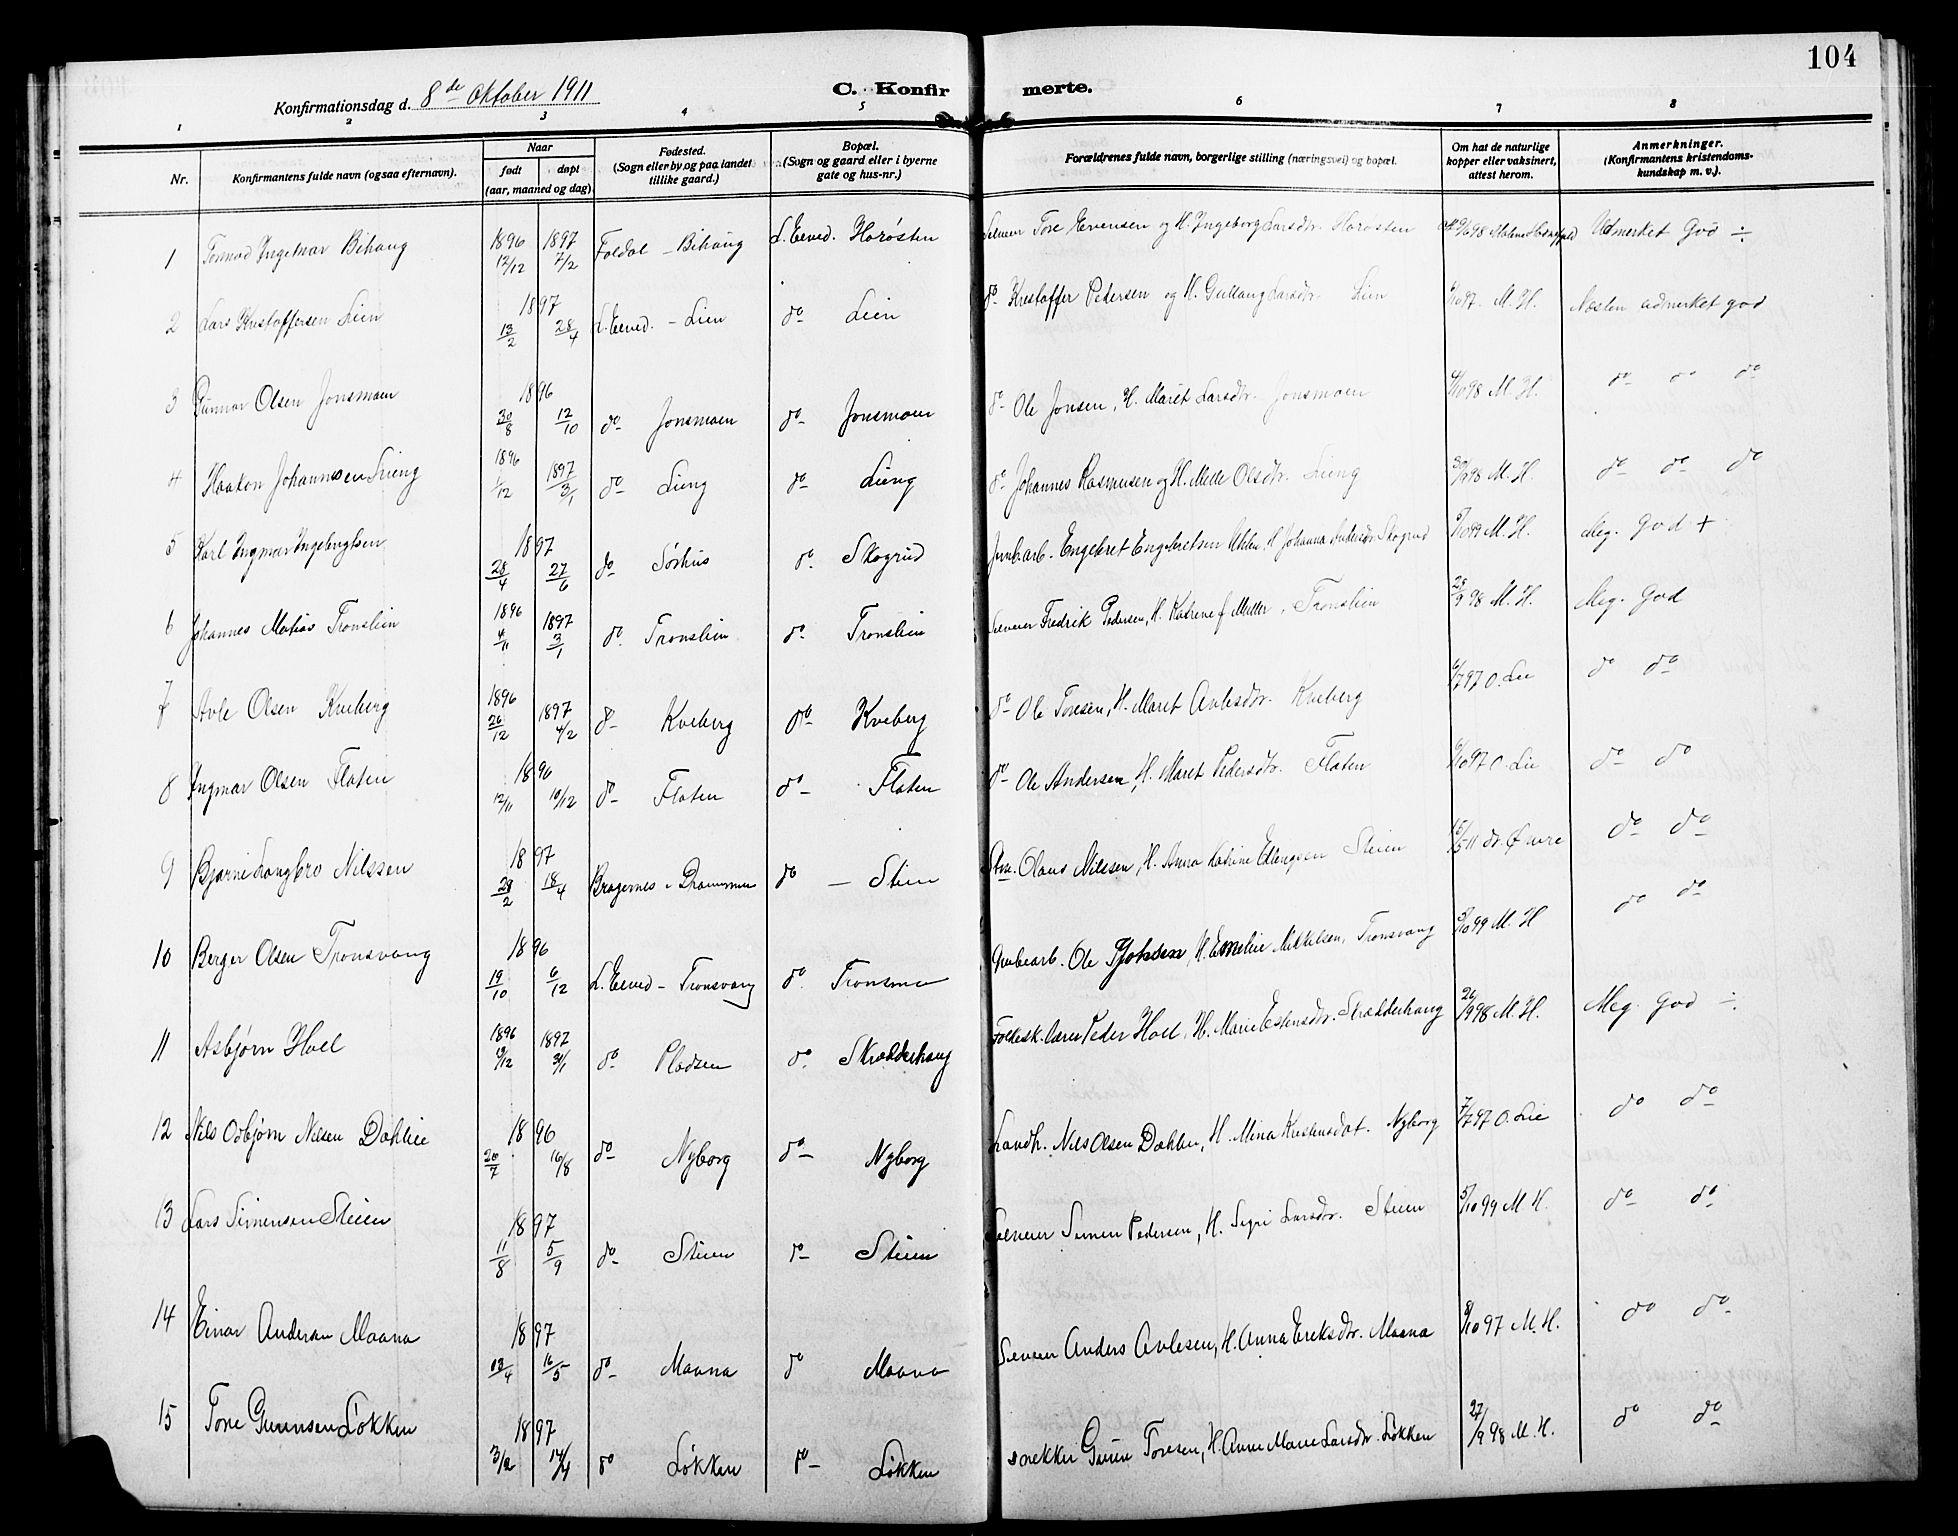 104
Konfirmationsdag d. 8de Oktober 1911
C. Konfirmerte.
1 2 3 4 5 6 7 8
Nr. Konfirmantens fulde navn (ogsaa efternavn). Naar født døpt (aar, maaned og dag) Fødested. (Sogn eller by og paa landet tillike gaard.) Bopæl. (Sogn og gaard eller i byerne gate og hus-nr.) Forældrenes fulde navn, borgerlige stilling (næringsvei) og bopæl. Om hat de naturlige kopper eller vaksinert, attest herom. Anmerkninger. (Konfirmantens kristendomskundskap m. v.).
1 Tormod Ingemar Bihaug 1896 12/12 1897 7/2 Foldal - Bihaug L. Elved. Horøsten Tore Evensen og H. Ingeborg Larsdr. Horøsten Udmerket God ÷
2 Lars Kristoffersen Lien 1897 13/2 28/4 L. Elved. - Lien do Lien do Kristoffer Pedersen og H. Gullaug Larsdr. Lien 97. M. H. Næsten udmerket god
3 Gunnar Olsen Jonsmoen 1896 30/8 12/10 do Jonsmoen do Jonsmoen do Ole Jonsen, H. Marit Larsdr. Jonsmoen 98 M. H. do do do
4 Haakon Johannesen Lieng 1896 1/12 1897 3/1 do Lieng do Lieng do Johannes Rasmusen og H. Mille Olsdr. Lieng 98 M. H. do do do
5 Karl Ingmar Ingebrigtsen 1897 28/4 27/6 do Sørhus do Skogrud Engebret Engebretsen H. Johanna Andersdr. Skogrud M. H. Meg. God +
6 Johannes Matias Tronslien 1896 4/11 1897 3/1 do. Tronslien do. Tronslien Fredrik Pedersen, H. Katrine f. Møller, Tronslien 28/9 98 M. H. Meg. God
7 Avle Olsen Kveberg 1896 26/12 1897 4/2 do Kveberg do Kveberg do Ole Toresen, H. Maret Avlesdr. Kveberg 97 O. Lie do do
8 Ingmar Olsen Floten 1896 12/11 10/12 do Floten do Floten do Ole Andersen, H. Maret Pedersdr. Floten 97 O. Lie do do
9 Bjarne Langbro Nilssen 1897 28/2 18/4 Bragernes i Drammen do - Stien Olaus Nilssen, H. Anna Katrine Stien 15/5 11 do do
10 Berger Olsen Tronsvang 1896 19/10 6/12 L. Elved - Tronsvang do. Tronsmo Ole H. Emelie Mikkelsen, Tronsvang 99 M. H do do
11 Asbjørn Holl 1896 1897 31/1 do Pladsen do. Skrædderhaug Peder Holl, H. Marie Estensdr. Skrædderhaug 26/9 98 M. H. Meg. God ÷
12 Nils Osbjørn Nilsen Dahlie 1896 20/7 16/8 do Nyborg do Nyborg Landh. Nils Olsen Dahlie, H. Mina Kristensdat. Nyborg 7/7 97 O. Lie do do
13 Lars Simensen Steien 1897 11/8 5/9 do Steien do Steien Selveier Simen Pedersen, H. Sigri Larsdr. Steien 5/10 99 M. H. do do
14 Einar Andersen Maana 1897 4 16/5 do Maana do Maana Selveier Anders Avlesen, H. Anna Eriksdr. Maana 8/10 97 M. H. do do
15 Tore Løkken 1897 3/2 14/4 do Løkken do Løkken snekker Toresen, H. Anne Marie Larsdr. Løkken 27/9 98 M. H. do do